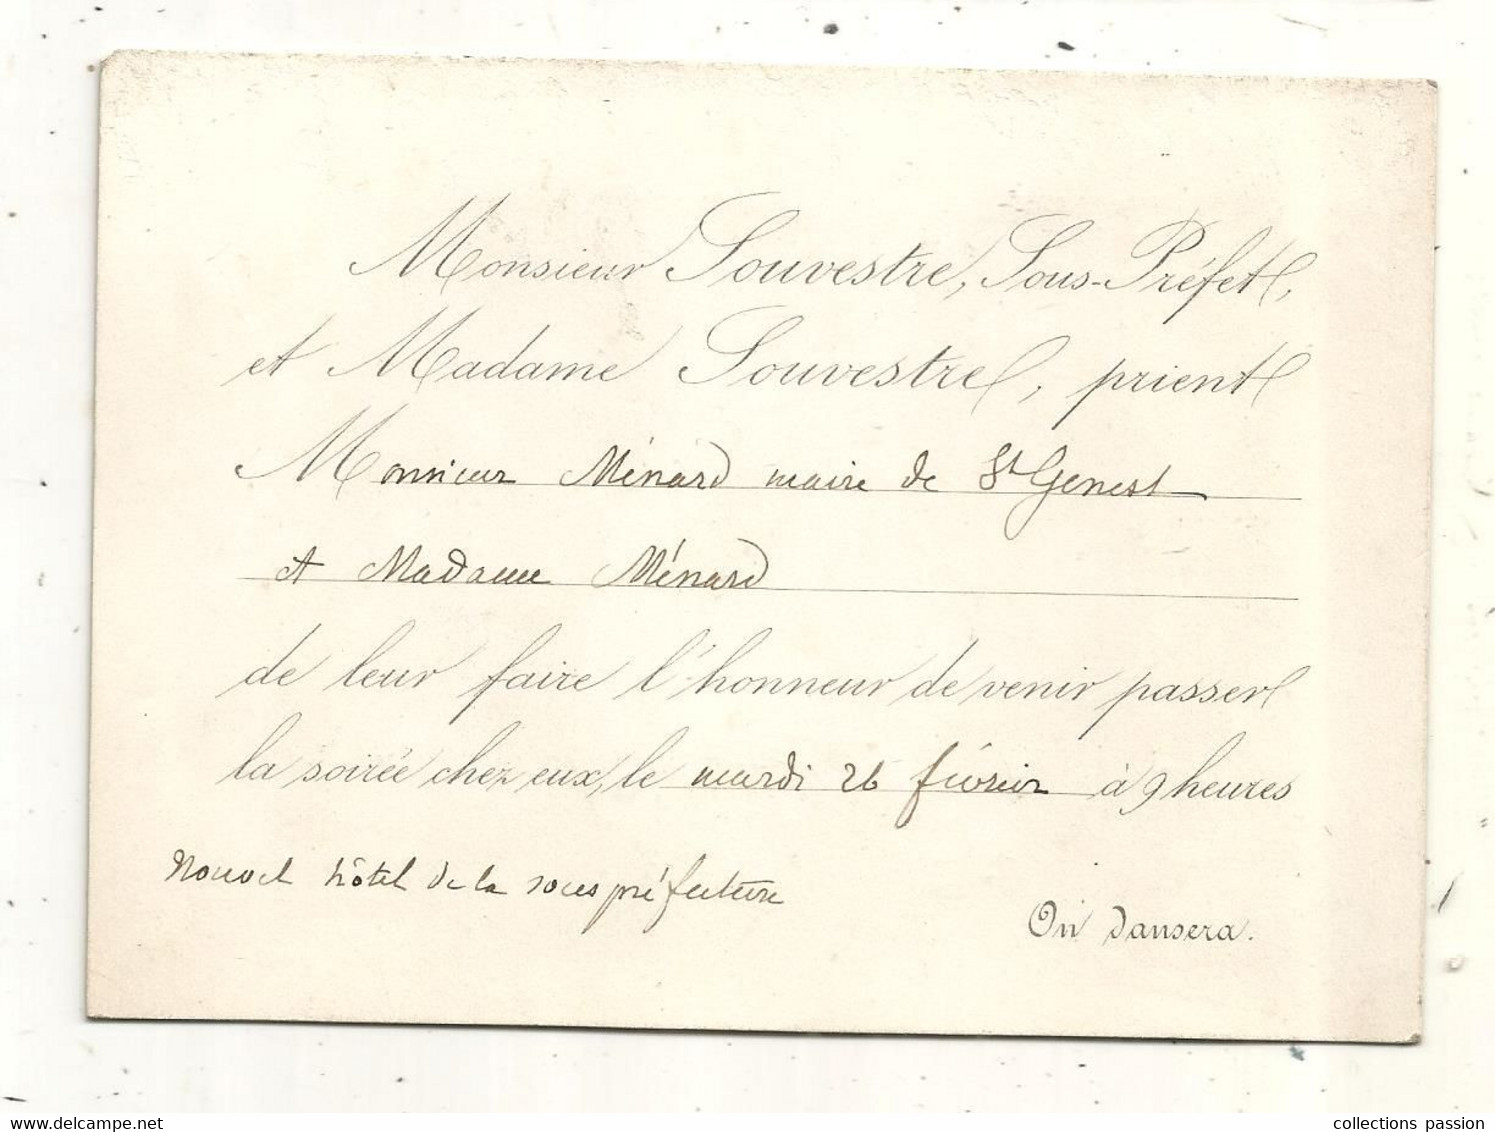 Monsieur Souvestre, Sous-Préfet,
et Madame Souvestre, prient
Monsieur Ménard maire de St Genest
et Madame Ménard
de leur faire l'honneur de venir passer
la soirée chez eux, le mardi 26 février à 9 heures
Nouvel hôtel de la sous préfecture
On dansera.
www.delcampe.net
collections passion